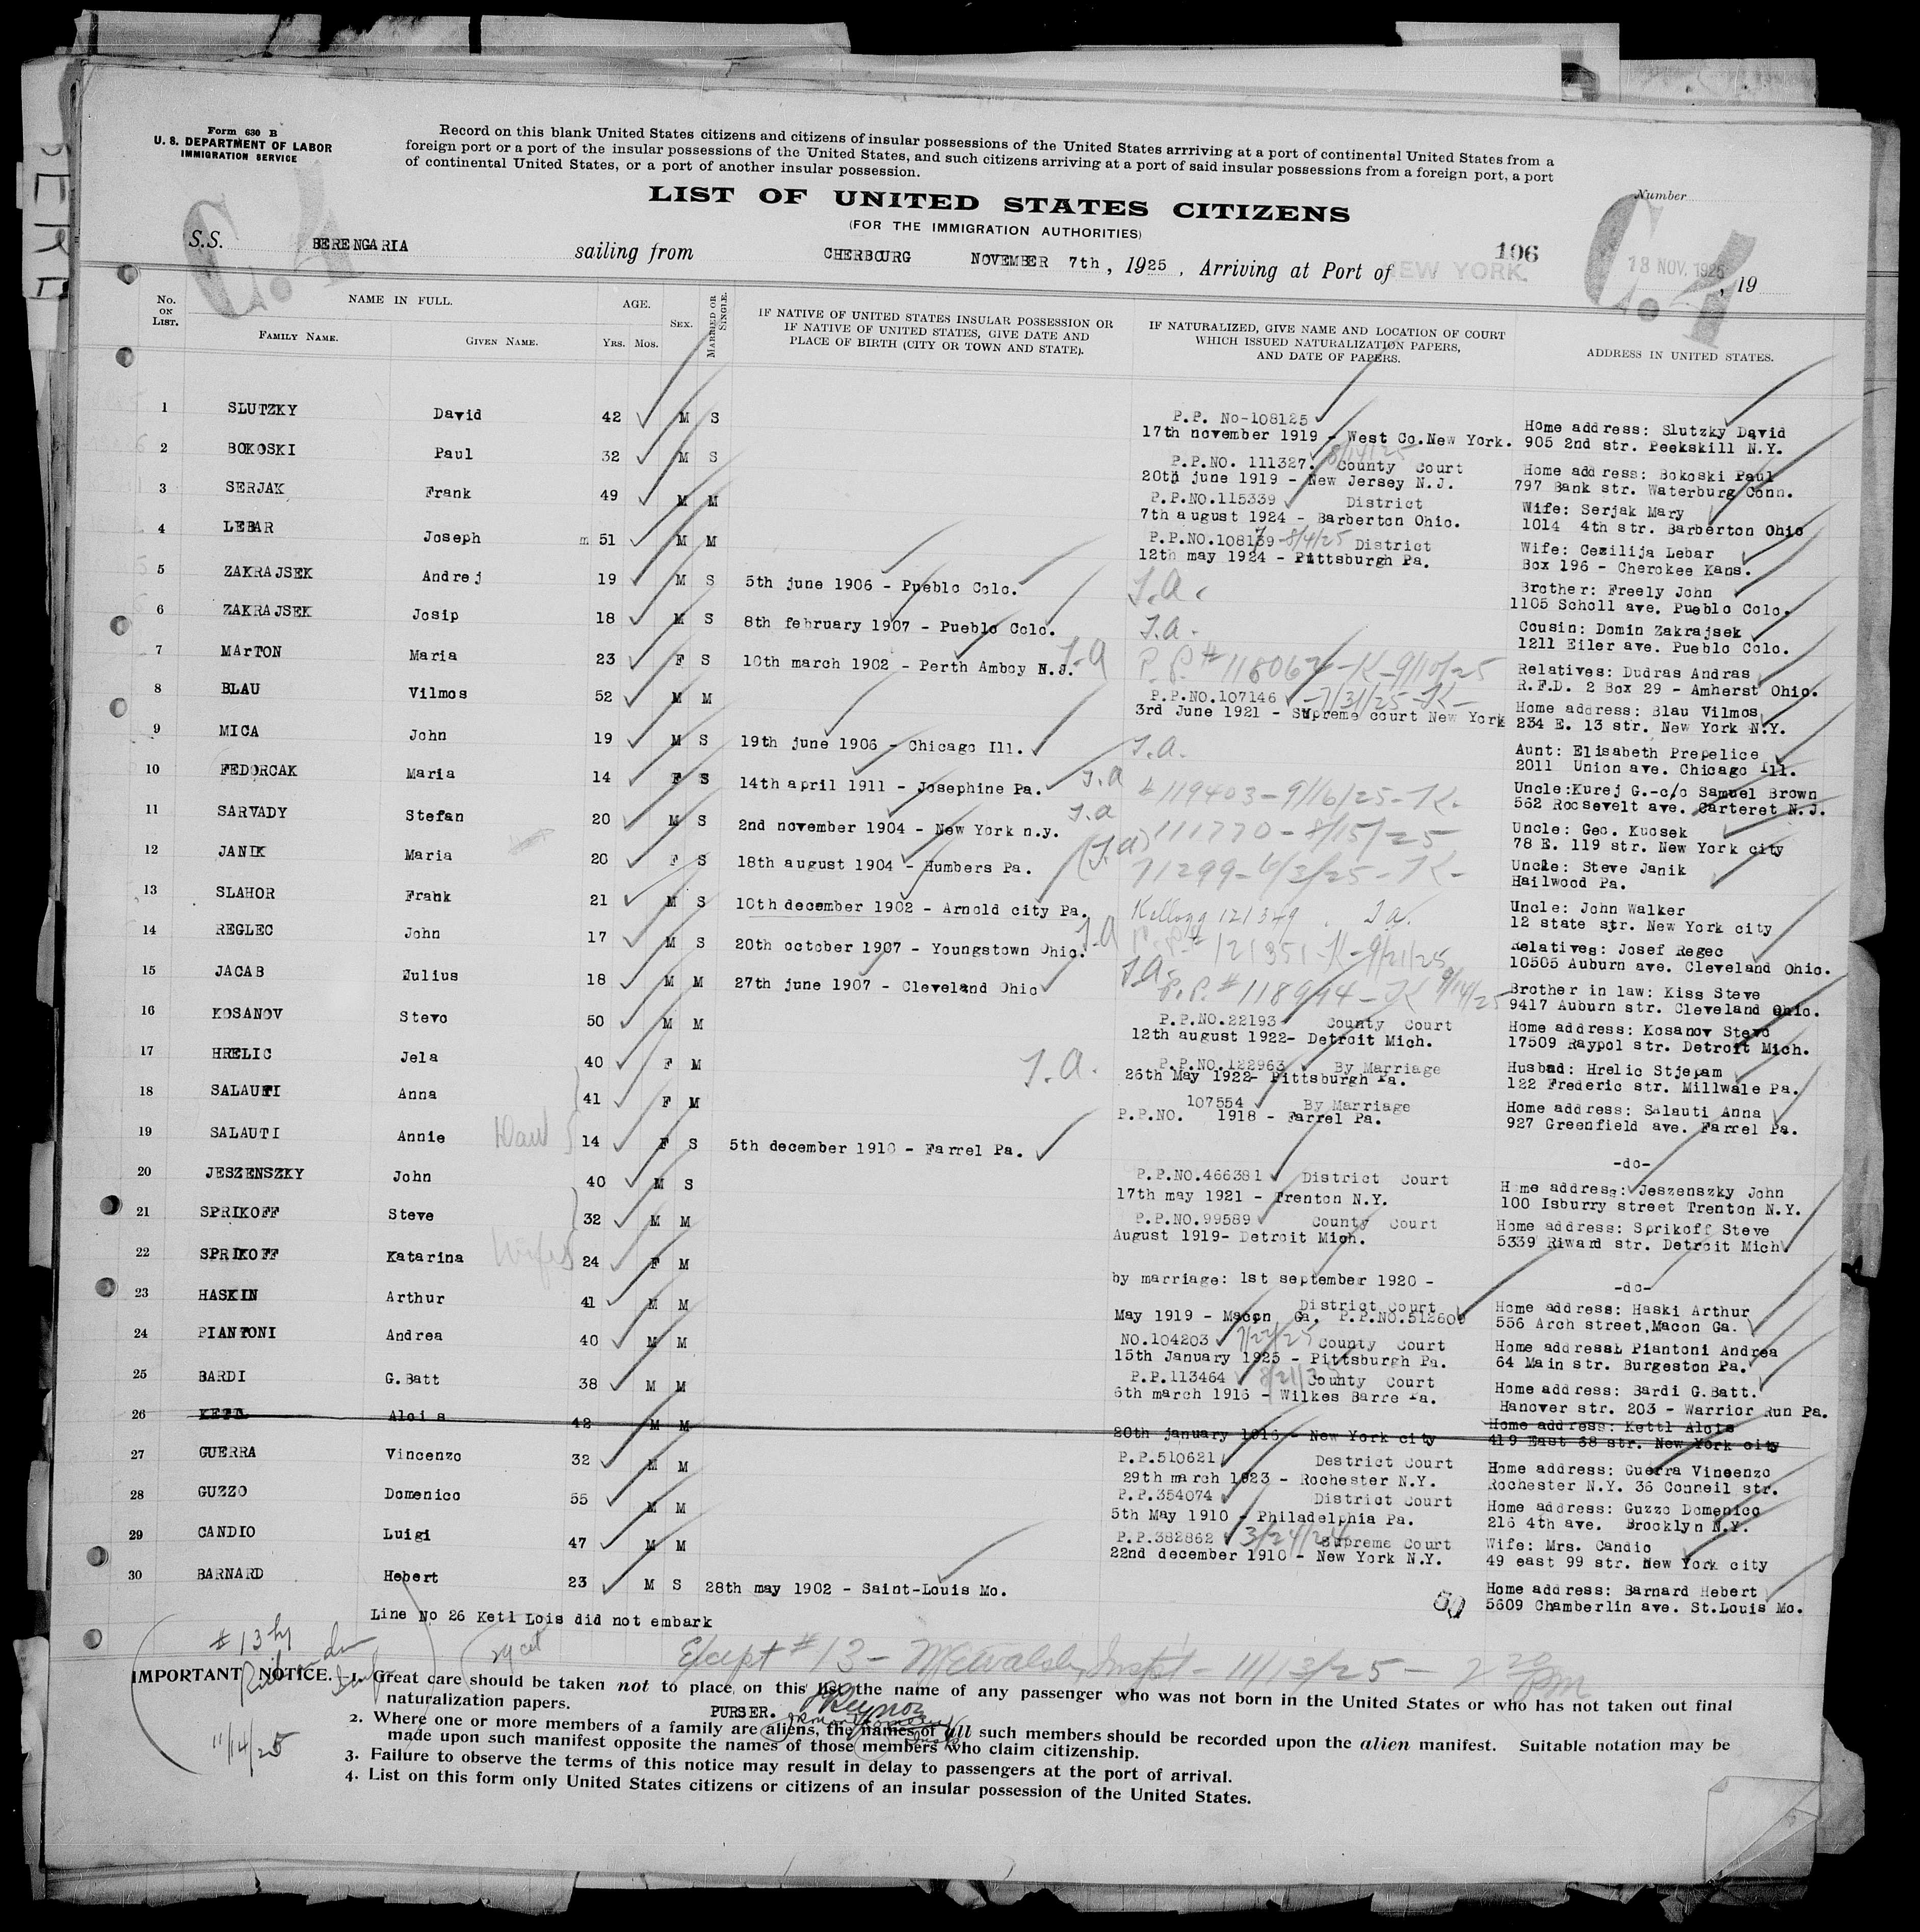 Form 630 B
U. S. DEPARTMENT OF LABOR
IMMIGRATION SERVICE
Record on this blank United States citizens and citizens of insular possessions of the United States arrriving at a port of continental United States from a
foreign port or a port of the insular possessions of the United States, and such citizens arriving at a port of said insular possessions from a foreign port, a port
of continental United States, or a port of another insular possession.
Number
LIST OF UNITED STATES CITIZENS
(FOR THE IMMIGRATION AUTHORITIES)
C.4
C.4
106
S.S. BERENGARIA sailing from CHERBOURG NOVEMBER 7th, 1925, Arriving at Port of NEW YORK 13 NOV. 1925, 19
No. ON LIST.
NAME IN FULL.
FAMILY NAME. GIVEN NAME.
AGE.
YRS. MOS.
SEX.
MARRIED OR SINGLE.
IF NATIVE OF UNITED STATES INSULAR POSSESSION OR
IF NATIVE OF UNITED STATES, GIVE DATE AND
PLACE OF BIRTH (CITY OR TOWN AND STATE).
IF NATURALIZED, GIVE NAME AND LOCATION OF COURT
WHICH ISSUED NATURALIZATION PAPERS,
AND DATE OF PAPERS.
ADDRESS IN UNITED STATES.
1 SLUTZKY David 42 M S P.P. No-108125 Home address: Slutzky David
17th november 1919 - West Co.New York. 905 2nd str. Peekskill N.Y.
2 BOKOSKI Paul 32 M S P.P.NO. 111327. 8/14/25 County Court Home address: Bokoski Paul
20th june 1919 - New Jersey N.J. 797 Bank str. Waterburg Conn.
3 SERJAK Frank 49 M M P.P.NO.115339 District Wife: Serjak Mary
7th august 1924 - Barberton Ohio. 1014 4th str. Barberton Ohio
4 LEBAR Joseph m 51 M M P.P.NO.108139 -8/4/25 District Wife: Cezilija Lebar
12th may 1924 - Pittsburgh Pa. Box 196 - Cherokee Kans.
5 ZAKRAJSEK Andrej 19 M S 5th june 1906 - Pueblo Colo. J.A. Brother: Freely John
1105 Scholl ave. Pueblo Colo.
6 ZAKRAJSEK Josip 18 M S 8th february 1907 - Pueblo Colo. J.a. Cousin: Domin Zakrajsek
1211 Eiler ave. Pueblo Colo.
7 MArTON Maria 23 F S 10th march 1902 - Perth Amboy N.J. J-a P.P.# 118062 -K-9/10/25 Relatives: Dudras Andras
R.F.D. 2 Box 29 - Amherst Ohio.
8 BLAU Vilmos 52 M M P.P.NO.107146 -7/31/25-K- Home address: Blau Vilmos
3rd June 1921 - Supreme court New York 234 E. 13 str. New York N.Y.
9 MICA John 19 M S 19th june 1906 - Chicago Ill. J.a. Aunt: Elisabeth Prepelice
2011 Union ave. Chicago Ill.
10 FEDORCAK Maria 14 F S 14th april 1911 - Josephine Pa. J.a # 119403-9/16/25-K- Uncle:Kurej G.-c/o Samuel Brown
562 Roosevelt ave. Carteret N.J.
11 SARVADY Stefan 20 M S 2nd november 1904 - New York n.y. J.a 111770-8/15/25 Uncle: Geo. Kucsek
78 E. 119 str. New York city
12 JANIK Maria 20 F S 18th august 1904 - Humbers Pa. (J.a) 71299-6/2/25-K- Uncle: Steve Janik
Hailwood Pa.
13 SLAHOR Frank 21 M S 10th december 1902 - Arnold city Pa. Kellogg 121349. J a. Uncle: John Walker
12 state str. New York city
14 REGLEC John 17 M S 20th october 1907 - Youngstown Ohio. J-a P.P.# 121351-K-9/21/25 Relatives: Josef Regec
10505 Auburn ave. Cleveland Ohio.
15 JACAB Julius 18 M M 27th june 1907 - Cleveland Ohio J.a. P.P.# 118994-K 9/14/25 Brother in law: Kiss Steve
9417 Auburn str. Cleveland Ohio.
16 KOSANOV Stevo 50 M M P.P.NO.22193 County Court Home address: Kosanov Stevo
12th august 1922- Detroit Mich. 17509 Raypol str. Detroit Mich.
17 HRELIC Jela 40 F M J.a. P.P.NO.122963 By Marriage Husbad: Hrelic Stjepam
26th May 1922- Pittsburgh Pa. 122 Frederic str. Millwale Pa.
18 SALAUTI Anna 41 F M 107554 By Marriage Home address: Salauti Anna
P.P.NO. 1918 - Farrel Pa. 927 Greenfield ave. Farrel Pa.
19 SALAUTI Annie Daut 14 F S 5th december 1910 - Farrel Pa. -do-
20 JESZENSZKY John 40 M S P.P.NO.466381 District Court Home address: Jeszenszky John
17th may 1921 - Trenton N.Y. 100 Isburry street Trenton N.Y.
21 SPRIKOFF Steve 32 M M P.P.NO.99589 County Court Home address: Sprikoff Steve
August 1919- Detroit Mich. 5339 Riward str. Detroit Mich
22 SPRIKOFF Katarina Wife 24 F M by marriage: 1st september 1920 - -do-
23 HASKIN Arthur 41 M M District Court Home address: Haski Arthur
May 1919 - Macon Ga. P.P.NO.512600 556 Arch street,Macon Ga.
24 PIANTONI Andrea 40 M M NO.104203 7/22/25 County Court Home address: Piantoni Andrea
15th January 1925 - Pittsburgh Pa. 64 Main str. Burgeston Pa.
25 BARDI G.Batt 38 M M P.P.113464 County Court Home address: Bardi G.Batt.
6th march 1916 - Wilkes Barre Pa. Hanover str. 203 - Warrior Run Pa.
26 KETL Alois 42 M M Home address: Kettl Alois
20th january 1916 - New York city 419 East 68 str. New York city
27 GUERRA Vincenzo 32 M M P.P.510621 Destrict Court Home address: Guerra Vincenzo
29th march 1923 - Rochester N.Y. Rochester N.Y. 36 Conneil str.
28 GUZZO Domenico 55 M M P.P.354074 District Court Home address: Guzzo Domenico
5th May 1910 - Philadelphia Pa. 216 4th ave. Brooklyn N.Y.
29 CANDIO Luigi 47 M M P.P.382862 3/24/24 Supreme Court Wife: Mrs. Candio
22nd december 1910 - New York N.Y. 49 east 99 str. New York city
30 BARNARD Hebert 23 M S 28th may 1902 - Saint-Louis Mo. Home address: Barnard Hebert
5609 Chamberlin ave. St.Louis Mo.
Line No 26 Ketl Lois did not embark
# 13 by
11/14/25
Except # 13 - Inspt - 11/13/25 - 2 20 pm
IMPORTANT NOTICE. 1. Great care should be taken not to place on this list the name of any passenger who was not born in the United States or who has not taken out final
naturalization papers.
PURSER.
2. Where one or more members of a family are aliens, the names of all such members should be recorded upon the alien manifest. Suitable notation may be
made upon such manifest opposite the names of those members who claim citizenship.
3. Failure to observe the terms of this notice may result in delay to passengers at the port of arrival.
4. List on this form only United States citizens or citizens of an insular possession of the United States.